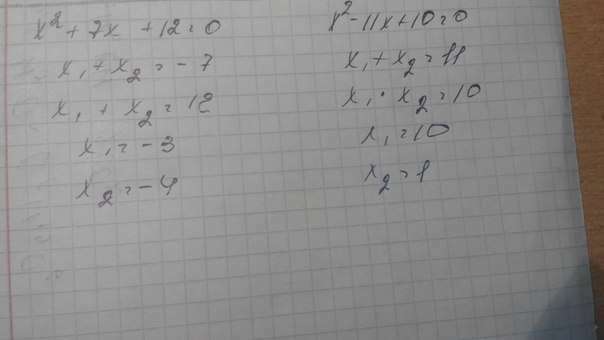 x² + 7x + 12 = 0
x₁ + x₂ = -7
x₁ + x₂ = 12
x₁ = -3
x₂ = -4
x² - 11x + 10 = 0
x₁ + x₂ = 11
x₁ · x₂ = 10
x₁ = 10
x₂ = 1